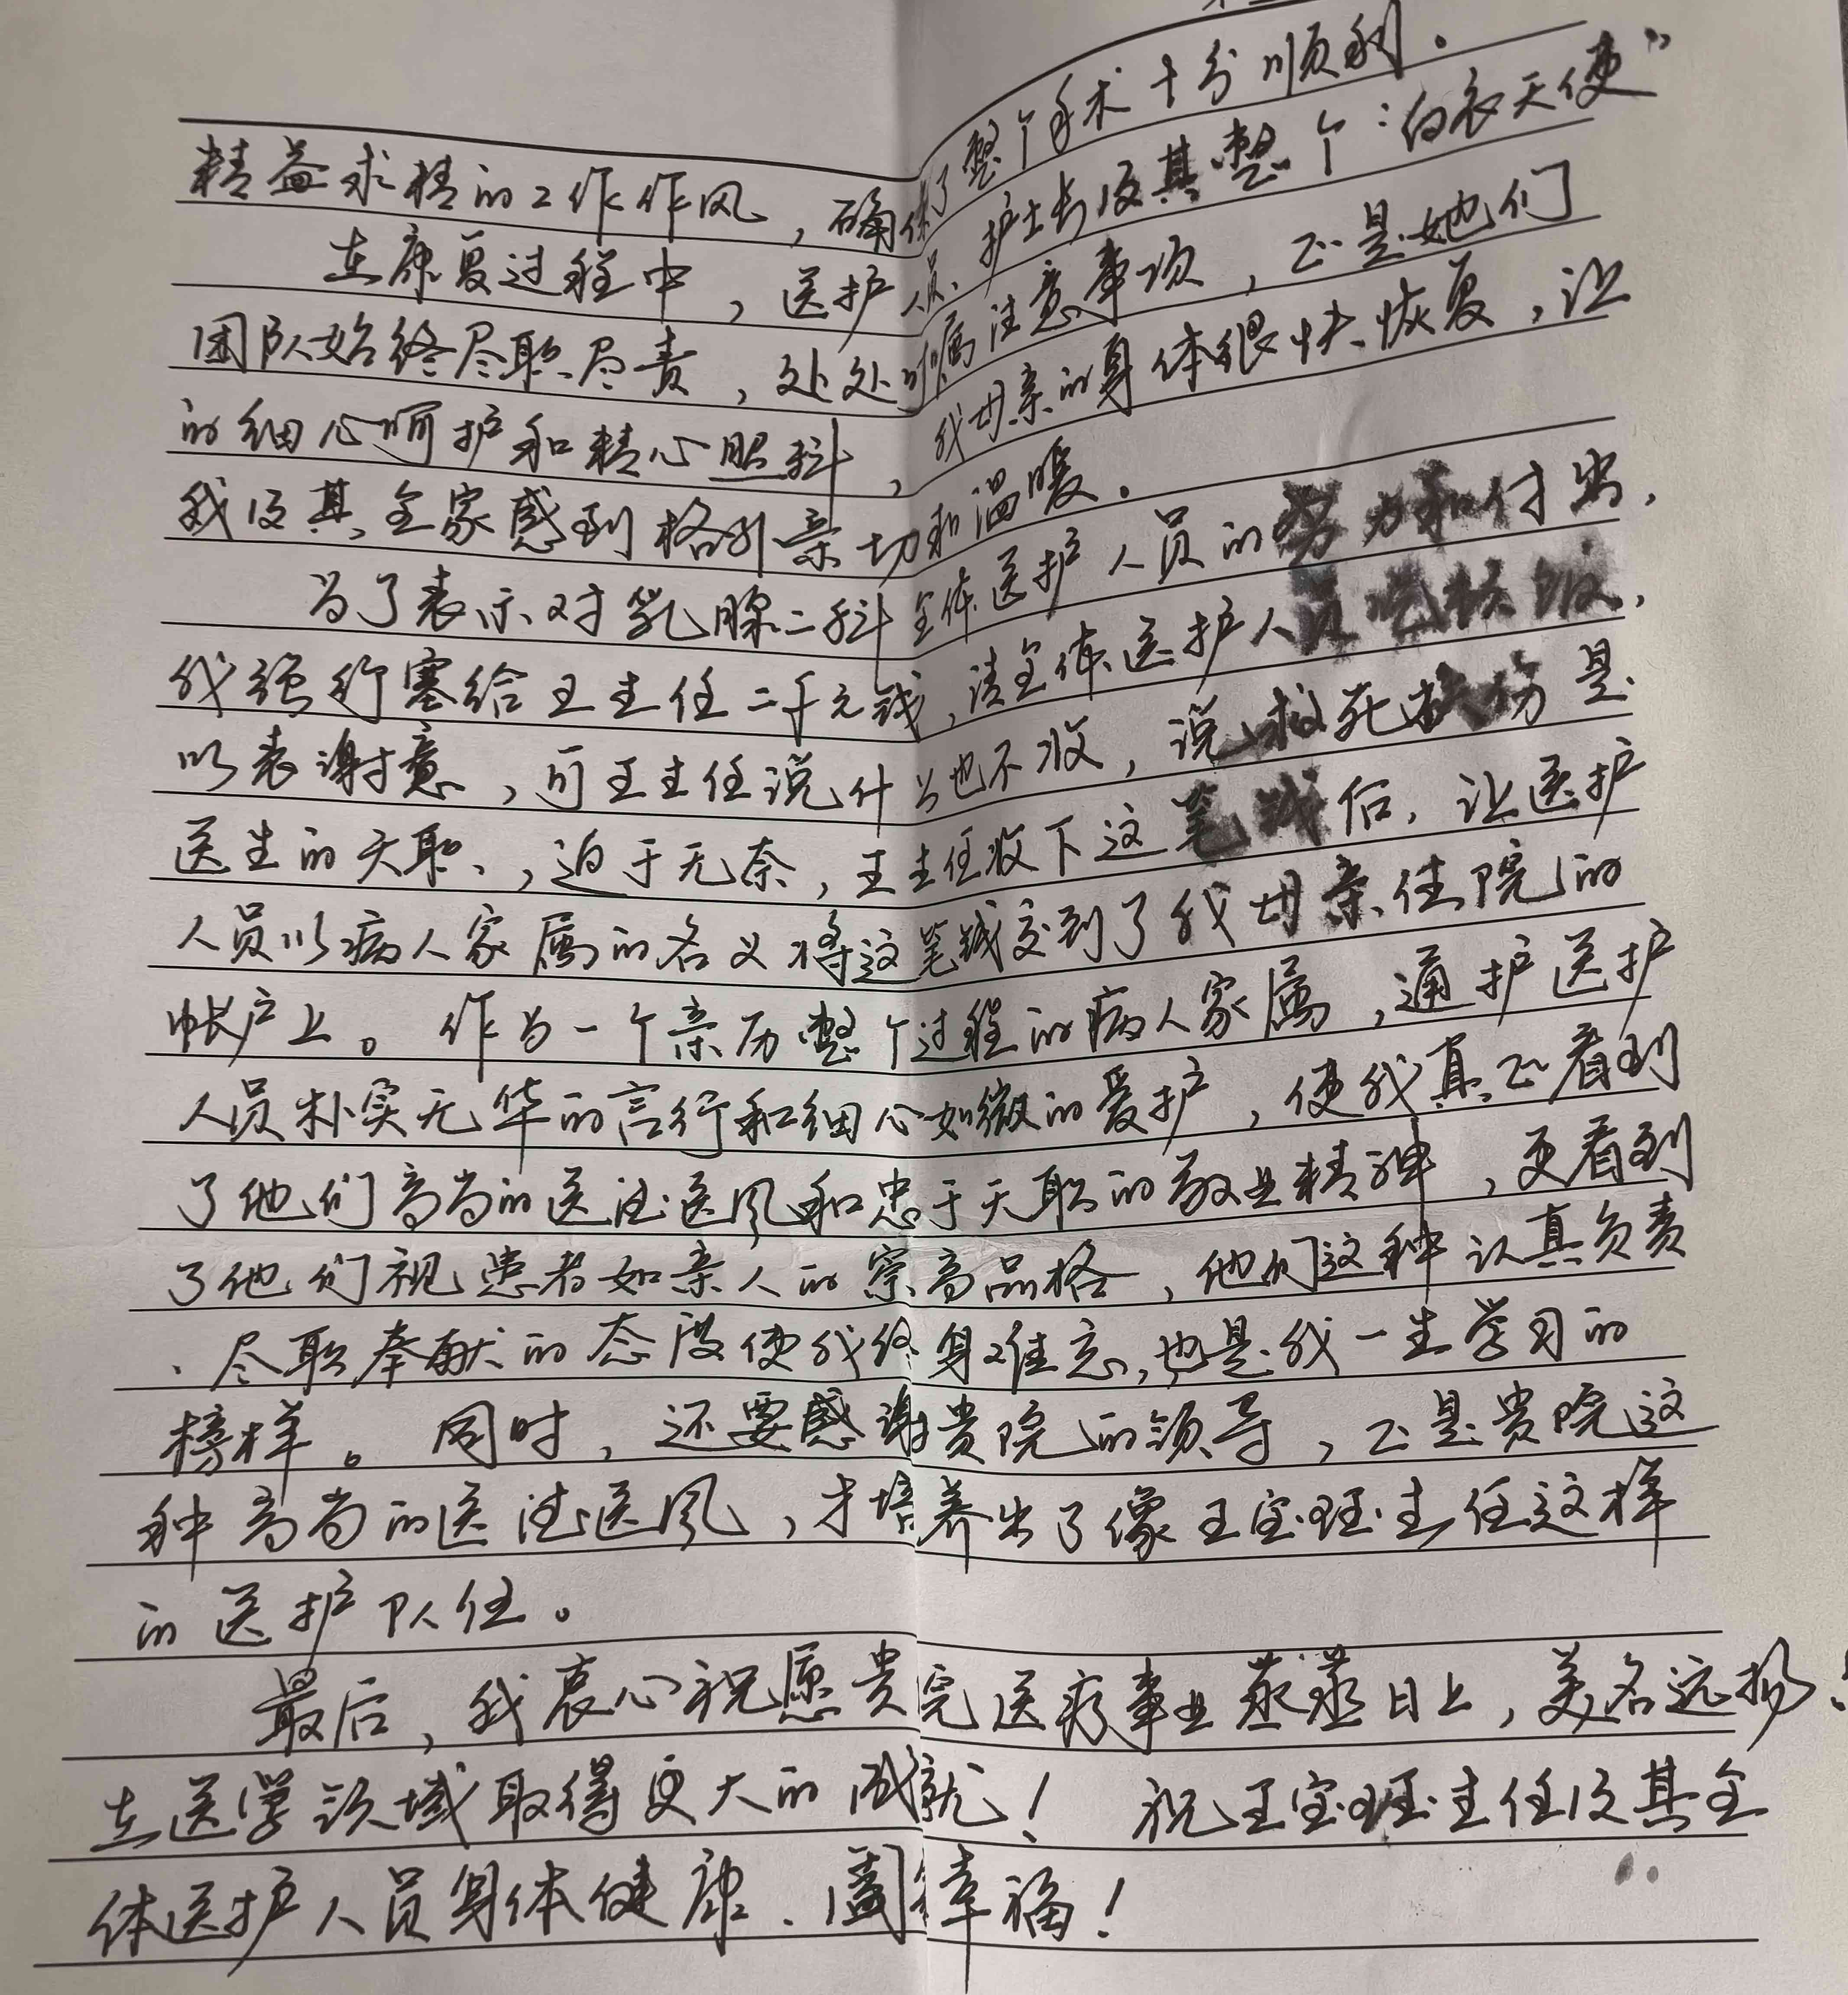 精益求精的工作作风，确保了整个手术十分顺利。
在康复过程中，医护人员、护士长及其整个“白衣天使”
团队始终尽职尽责，处处叮嘱注意事项，正是她们
的细心呵护和精心照料，我母亲的身体很快恢复，让
我及其全家感到格外亲切和温暖。
为了表示对乳腺二科全体医护人员的努力和付出，
我强行塞给王主任二千元钱，请全体医护人员吃顿饭，
以表谢意，可王主任说什么也不收，说救死扶伤是
医生的天职，迫于无奈，王主任收下这笔钱后，让医护
人员以病人家属的名义将这笔钱交到了我母亲住院的
帐户上。作为一个亲历整个过程的病人家属，通护医护
人员朴实无华的言行和细心如微的爱护，使我真正看到
了他们高尚的医德医风和忠于天职的敬业精神，更看到
了他们视患者如亲人的崇高品格，他们这种认真负责
、尽职奉献的态度使我终身难忘，也是我一生学习的
榜样。同时，还要感谢贵院的领导，正是贵院这
种高尚的医德医风，才培养出了像王宝珏主任这样
的医护队伍。
最后，我衷心祝愿贵院医疗事业蒸蒸日上，美名远扬！
在医学领域取得更大的成就！祝王宝珏主任及其全
体医护人员身体健康、阖幸福！